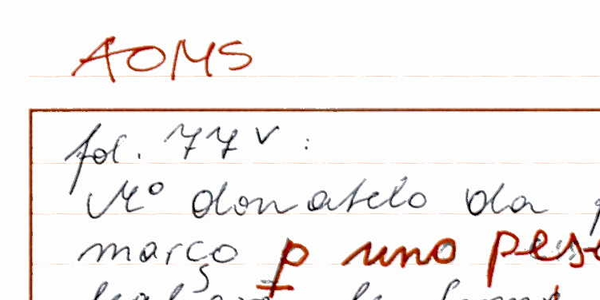 AOMS
fol. 77v:
M° donatelo da
março p uno